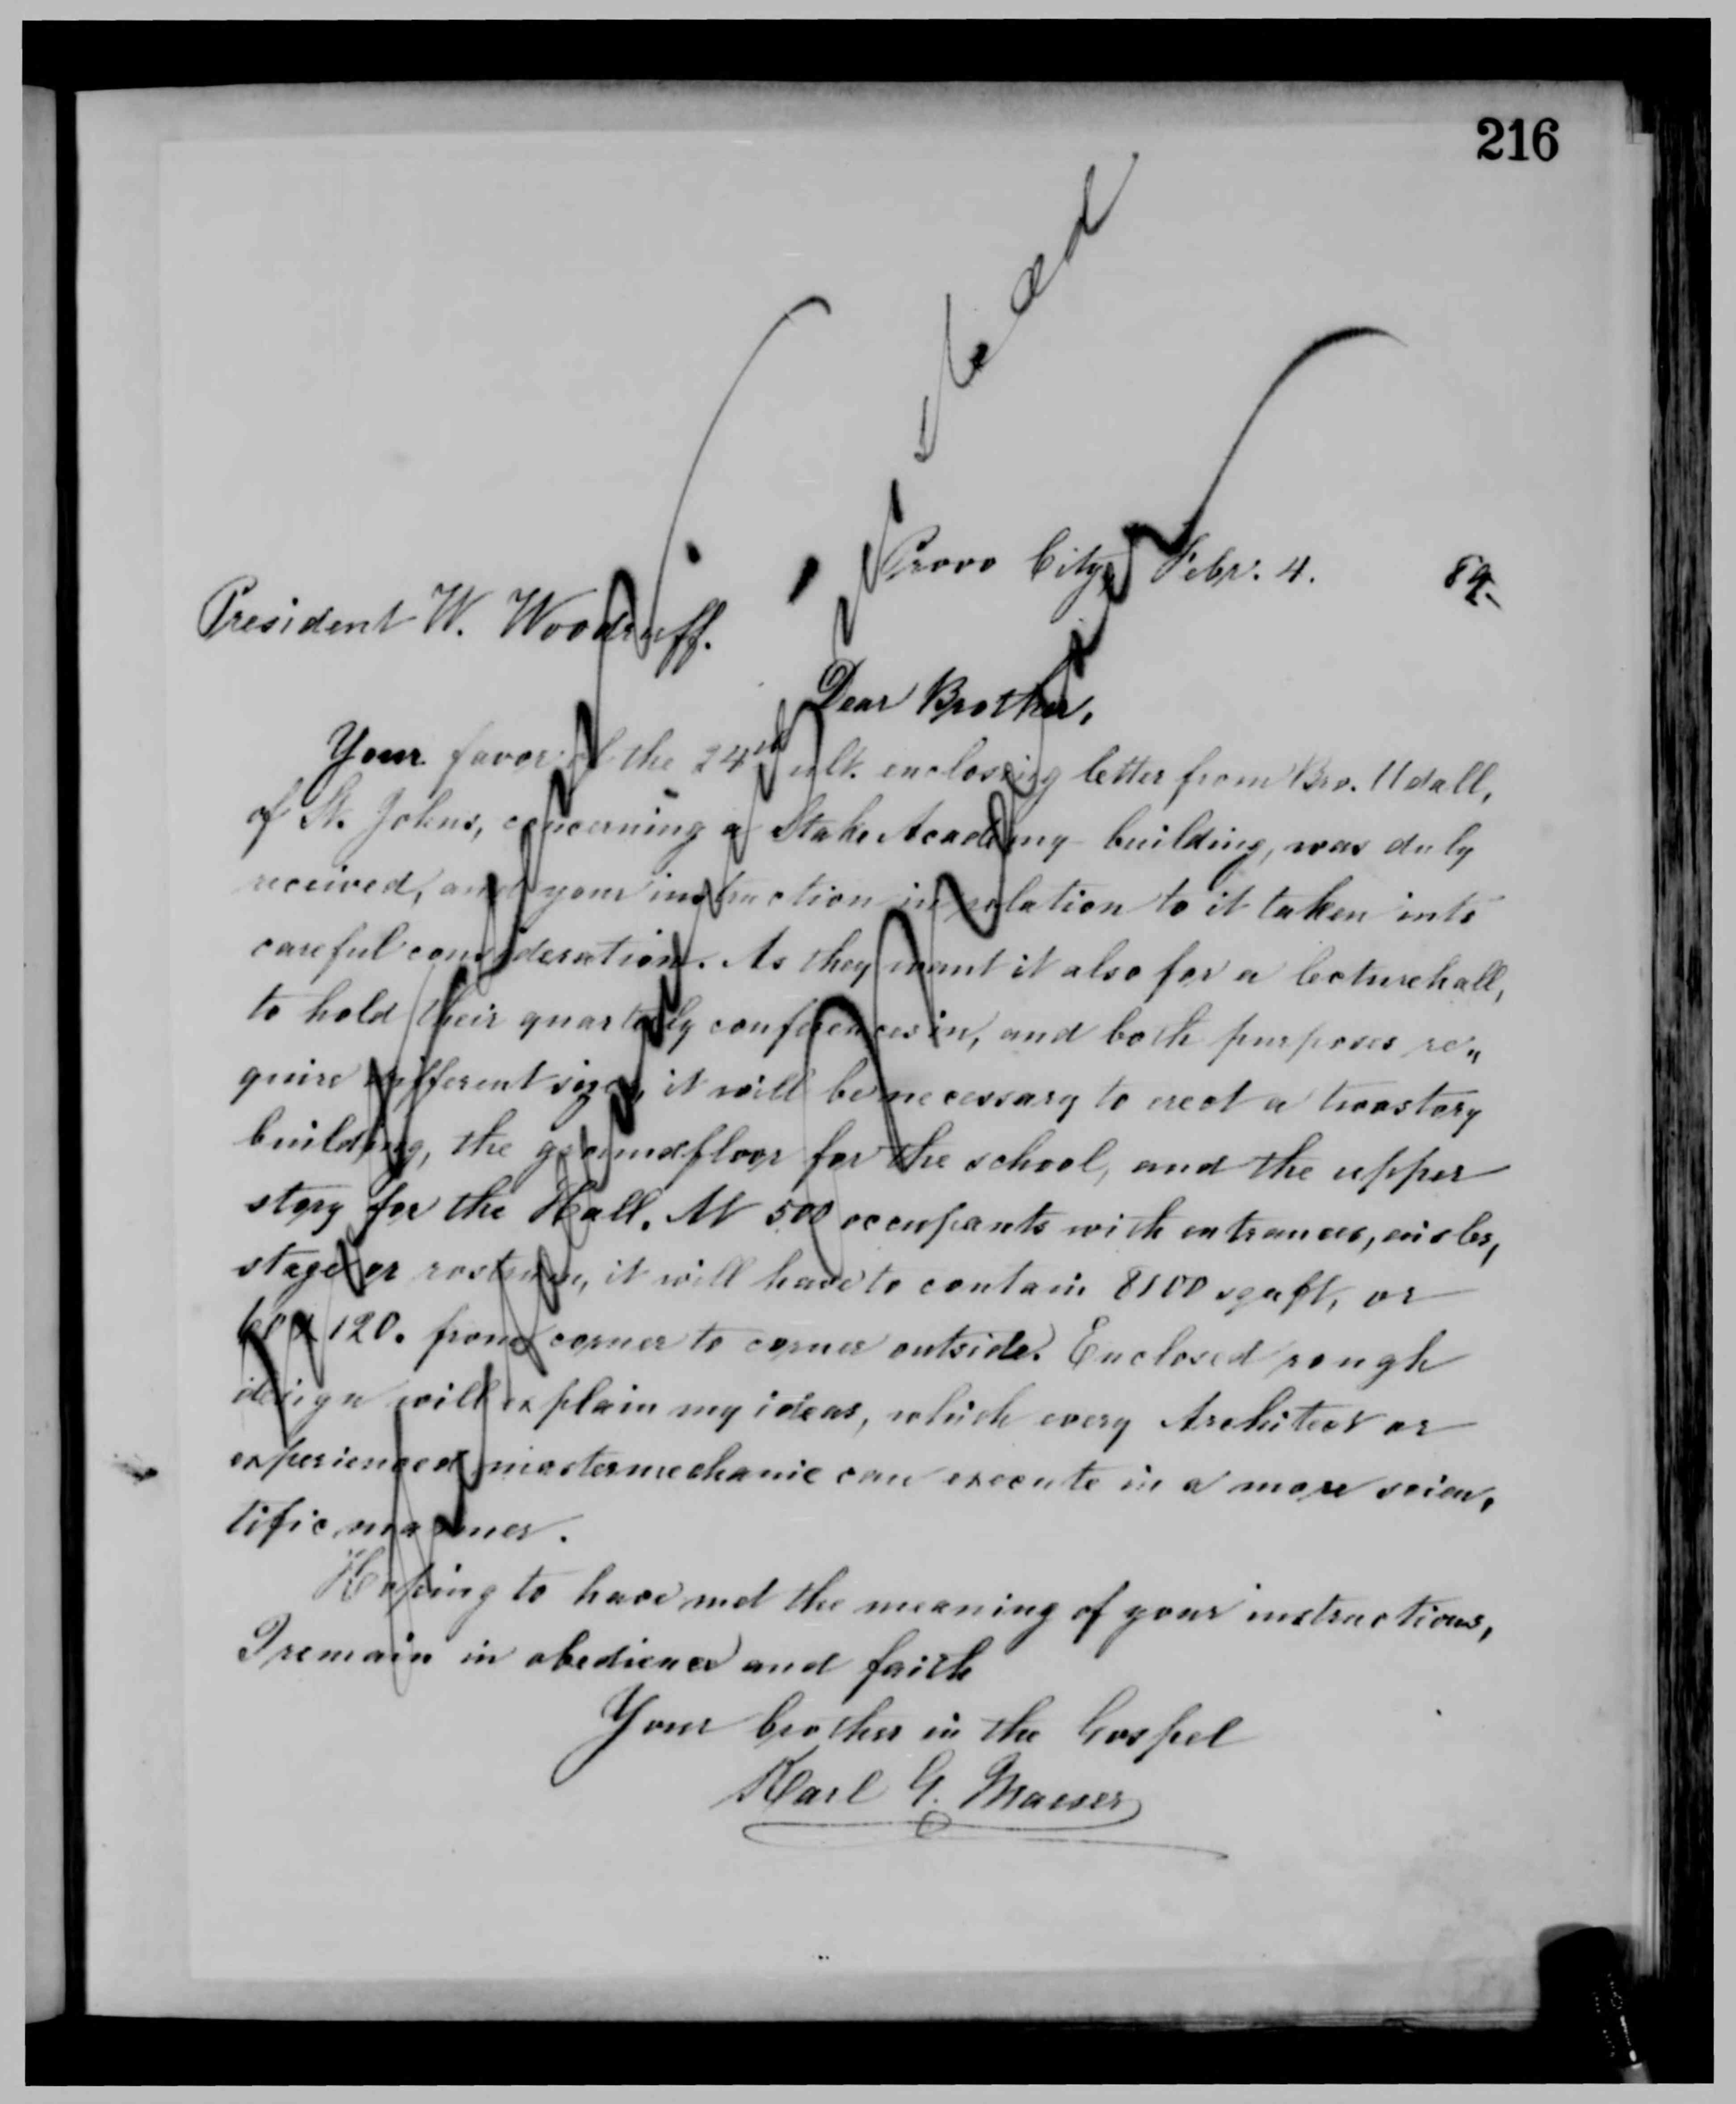 216
Provo City, Febr. 4. 89.
President W. Woodruff.
Dear Brother,
Your favor of the 24th ult. enclosing letter from Bro. Udall,
of St. Johns, concerning a Stake Academy building, was duly
received, and your instruction in relation to it taken into
careful consideration. As they want it also for a lecturehall,
to hold their quarterly conferences in, and both purposes re„
quire different sizes, it will be necessary to erect a twostory
building, the groundfloor for the school, and the upper
story for the Hall. At 500 occupants with entrances, aisles,
stage or rostrum, it will have to contain 8100 squ ft, or
x 120. from corner to corner outside. Enclosed rough
design will explain my ideas, which every Architect or
experienced mastermechanic can execute in a more scien„
tific manner.
Hoping to have met the meaning of your instructions,
I remain in obedience and faith
Your brother in the Gospel
Karl G. Maeser